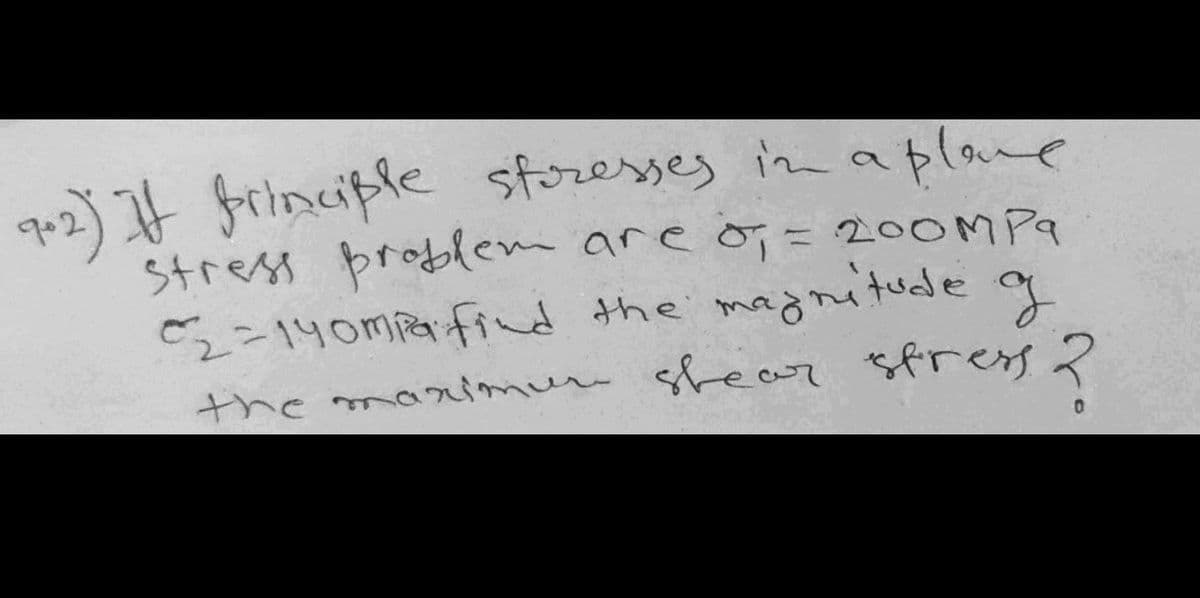 Q.2) If principle stresses in a plane
stress problem are σ₁ = 200MPa
σ₂ = 140MPa find the magnitude of
the maximum shear stress ?